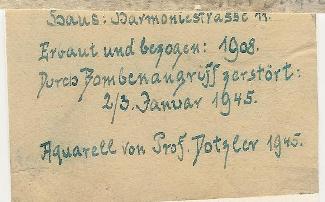 Haus: Harmoniestrasse 11.
Erbaut und bezogen: 1908.
Durch Bombenangriff zerstört:
2/3. Januar 1945.
Aquarell von Prof. Dotzler 1945.